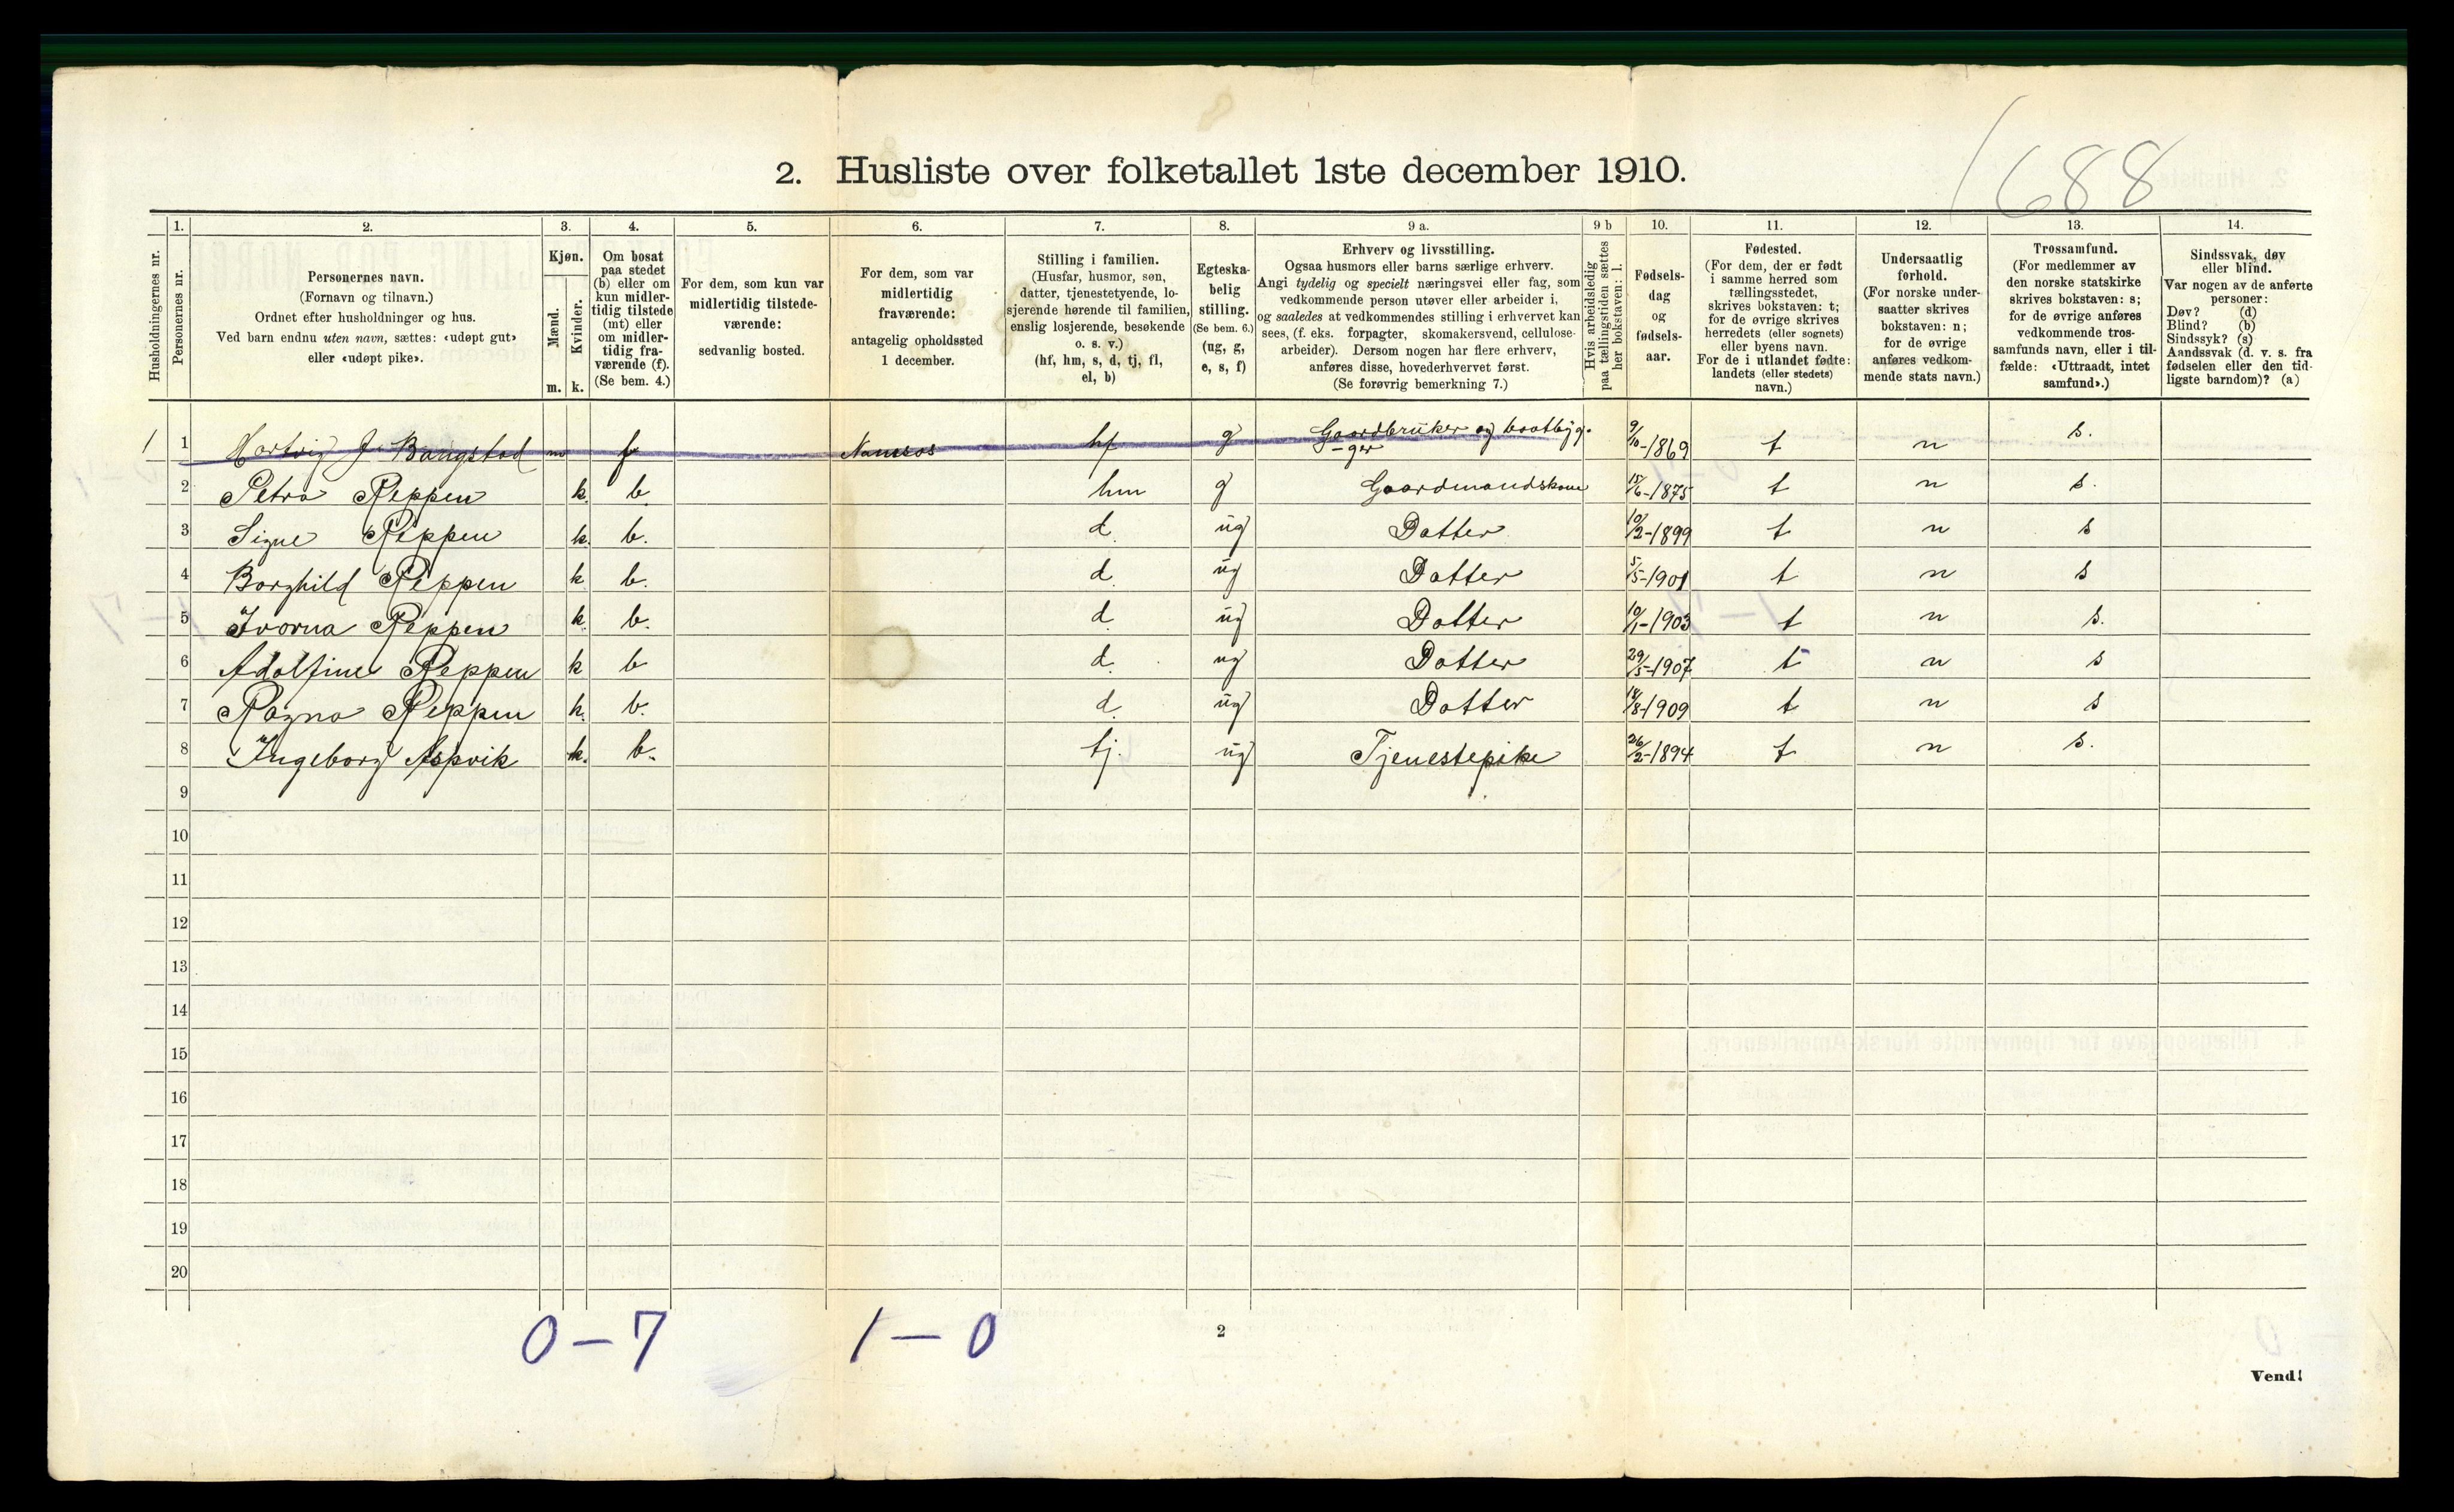 1688
2. Husliste over folketallet 1ste december 1910.
1. 2. 3. 4. 5. 6. 7. 8. 9 a. 9 b 10. 11. 12. 13. 14.
Husholdningernes nr.
Personernes nr.
Personernes navn.
(Fornavn og tilnavn.)
Ordnet efter husholdninger og hus.
Ved barn endnu uten navn, sættes: «udøpt gut»
eller «udøpt pike».
Kjøn.
Mænd.
Kvinder.
m. k.
Om bosat
paa stedet
(b) eller om
kun midler-
tidig tilstede
(mt) eller
om midler-
tidig fra-
værende (f).
(Se bem. 4.)
For dem, som kun var
midlertidig tilstede-
værende:
sedvanlig bosted.
For dem, som var
midlertidig
fraværende:
antagelig opholdssted
1 december.
Stilling i familien.
(Husfar, husmor, søn,
datter, tjenestetyende, lo-
sjerende hørende til familien,
enslig losjerende, besøkende
o. s. v.)
(hf, hm, s, d, tj, fl,
el, b)
Egteska-
belig
stilling.
(Se bem. 6.)
(ug, g,
e, s, f)
Erhverv og livsstilling.
Ogsaa husmors eller barns særlige erhverv.
Angi tydelig og specielt næringsvei eller fag, som
vedkommende person utøver eller arbeider i,
og saaledes at vedkommendes stilling i erhvervet kan
sees, (f. eks. forpagter, skomakersvend, cellulose-
arbeider). Dersom nogen har flere erhverv,
anføres disse, hovederhvervet først.
(Se forøvrig bemerkning 7.)
Hvis arbeidsledig
paa tællingstiden sættes
her bokstaven: l.
Fødsels-
dag
og
fødsels-
aar.
Fødested.
(For dem, der er født
i samme herred som
tællingsstedet,
skrives bokstaven: t;
for de øvrige skrives
herredets (eller sognets)
eller byens navn.
For de i utlandet fødte:
landets (eller stedets)
navn.)
Undersaatlig
forhold.
(For norske under-
saatter skrives
bokstaven: n;
for de øvrige
anføres vedkom-
mende stats navn.)
Trossamfund.
(For medlemmer av
den norske statskirke
skrives bokstaven: s;
for de øvrige anføres
vedkommende tros-
samfunds navn, eller i til-
fælde: «Uttraadt, intet
samfund».)
Sindssvak, døv
eller blind.
Var nogen av de anførte
personer:
Døv? (d)
Blind? (b)
Sindssyk? (s)
Aandssvak (d. v. s. fra
fødselen eller den tid-
ligste barndom)? (a)
1 1 Hartvig J. Bangstad m f Namsos hf g Gaardbruker og baatbyg-
-ger 9/10-1869 t n s.
2 Petra Reppen k. b. hm g Gaardmandskone 15/6-1875 t n s.
3 Signe Reppen k. b. d. ug Datter 10/2-1899 t n s
4 Borghild Reppen k b. d. ug Datter 5/5-1901 t n s
5 Ivorna Reppen k. b. d. ug Datter 10/1-1903 t n s.
6 Adolfine Reppen k b d. ug Datter 29/5-1907 t n s
7 Ragna Reppen k. b. d. ug Datter 18/8-1909 t n s
8 Ingeborg Aspvik k. b. tj. ug Tjenestepike 26/2-1894 t n s.
9
10
11
12
13
14
15
16
17
18
19
20
0-7 1-0
2
Vend!